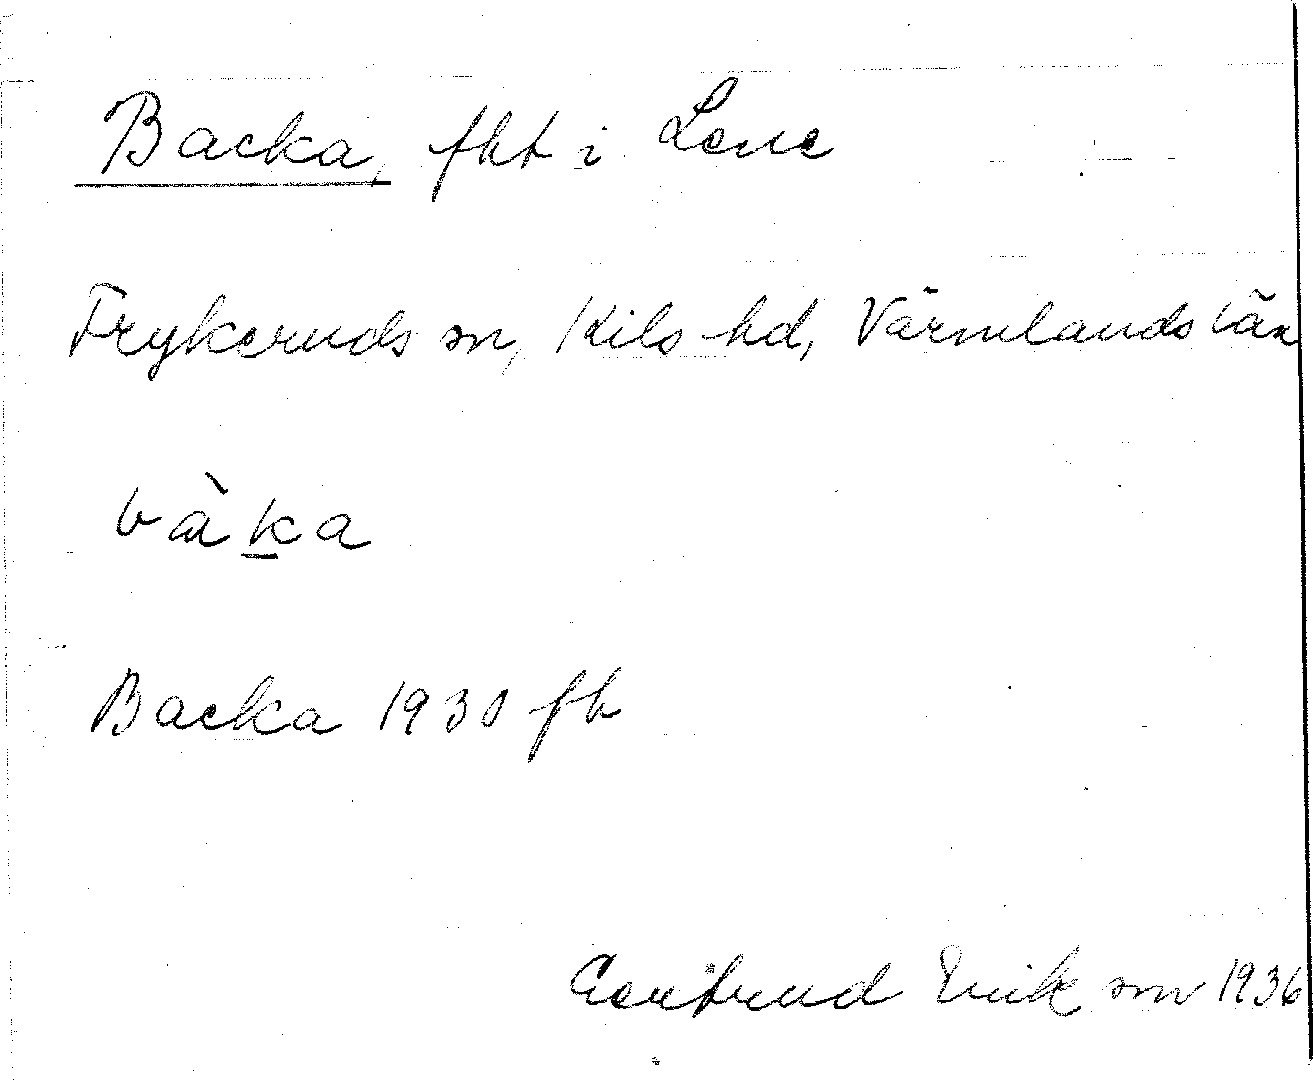 Backa, fht i Lene
Frykeruds sn, Kils hd, Värmlands län
bàka
Backa 1930 fb
Gertrud Eriksson 1936